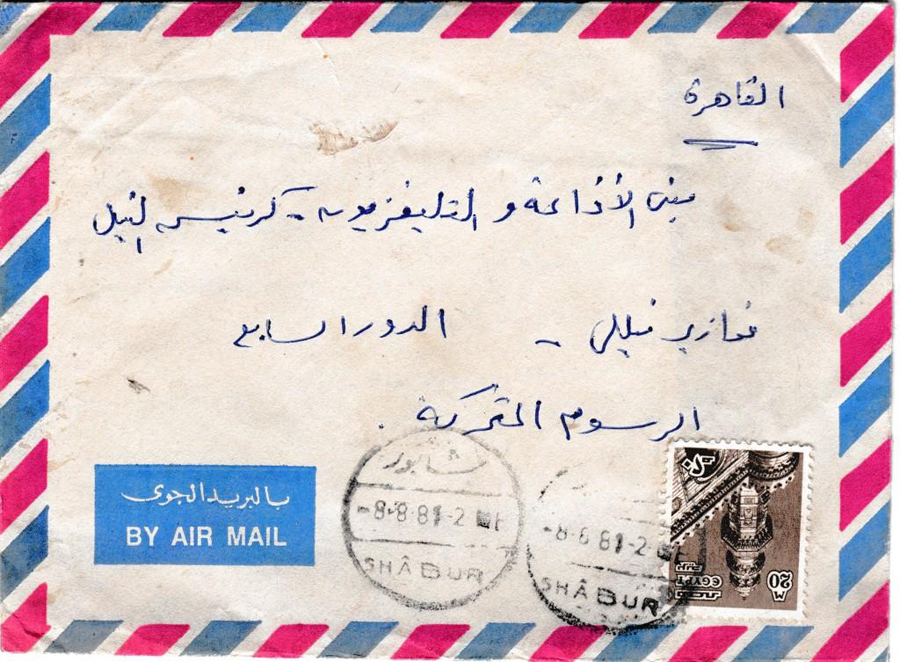 القاهرة
مبنى الأذاعة و التليفزيون - كورنيش النيل
فوازير فطوطة - الدور السابع
الرسوم المتحركة .
بالبريد الجوى
BY AIR MAIL
شابور
-8-8-81-2
SHÂBUR
-8-8 81-2
SHÂBUR
مصر
EGYPT
بريد
M 20